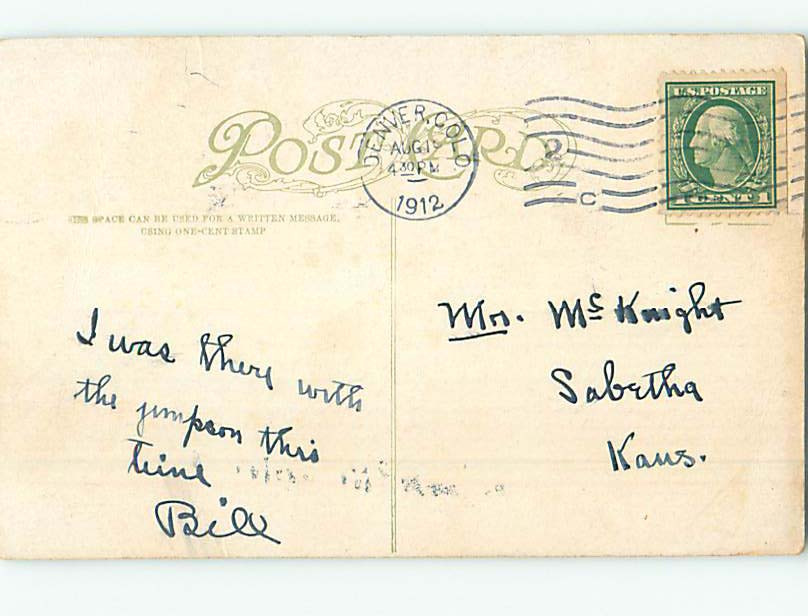 POST CARD
DENVER, COLO.
AUG 15
4 30 PM
1912
2
C
U.S. POSTAGE
1 CENT 1
THIS SPACE CAN BE USED FOR A WRITTEN MESSAGE,
USING ONE-CENT STAMP
I was there with
the jimpson this
time
Bill
Mrs. McKnight
Sabetha
Kans.